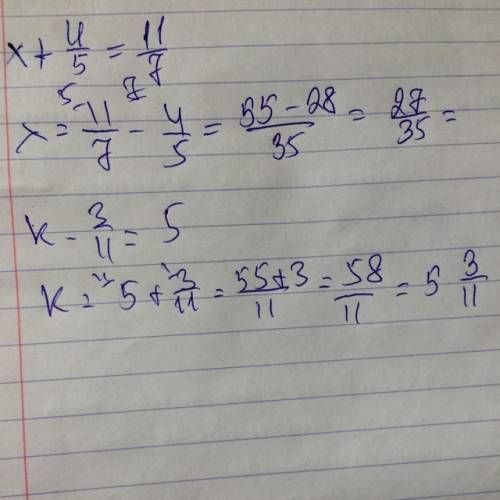 x + 4/5 = 11/7
x = 5 11/7 - 7 4/5 = 55-28/35 = 27/35 =
k - 3/11 = 5
k = 11 5 + 1 3/11 = 55+3/11 = 58/11 = 5 3/11